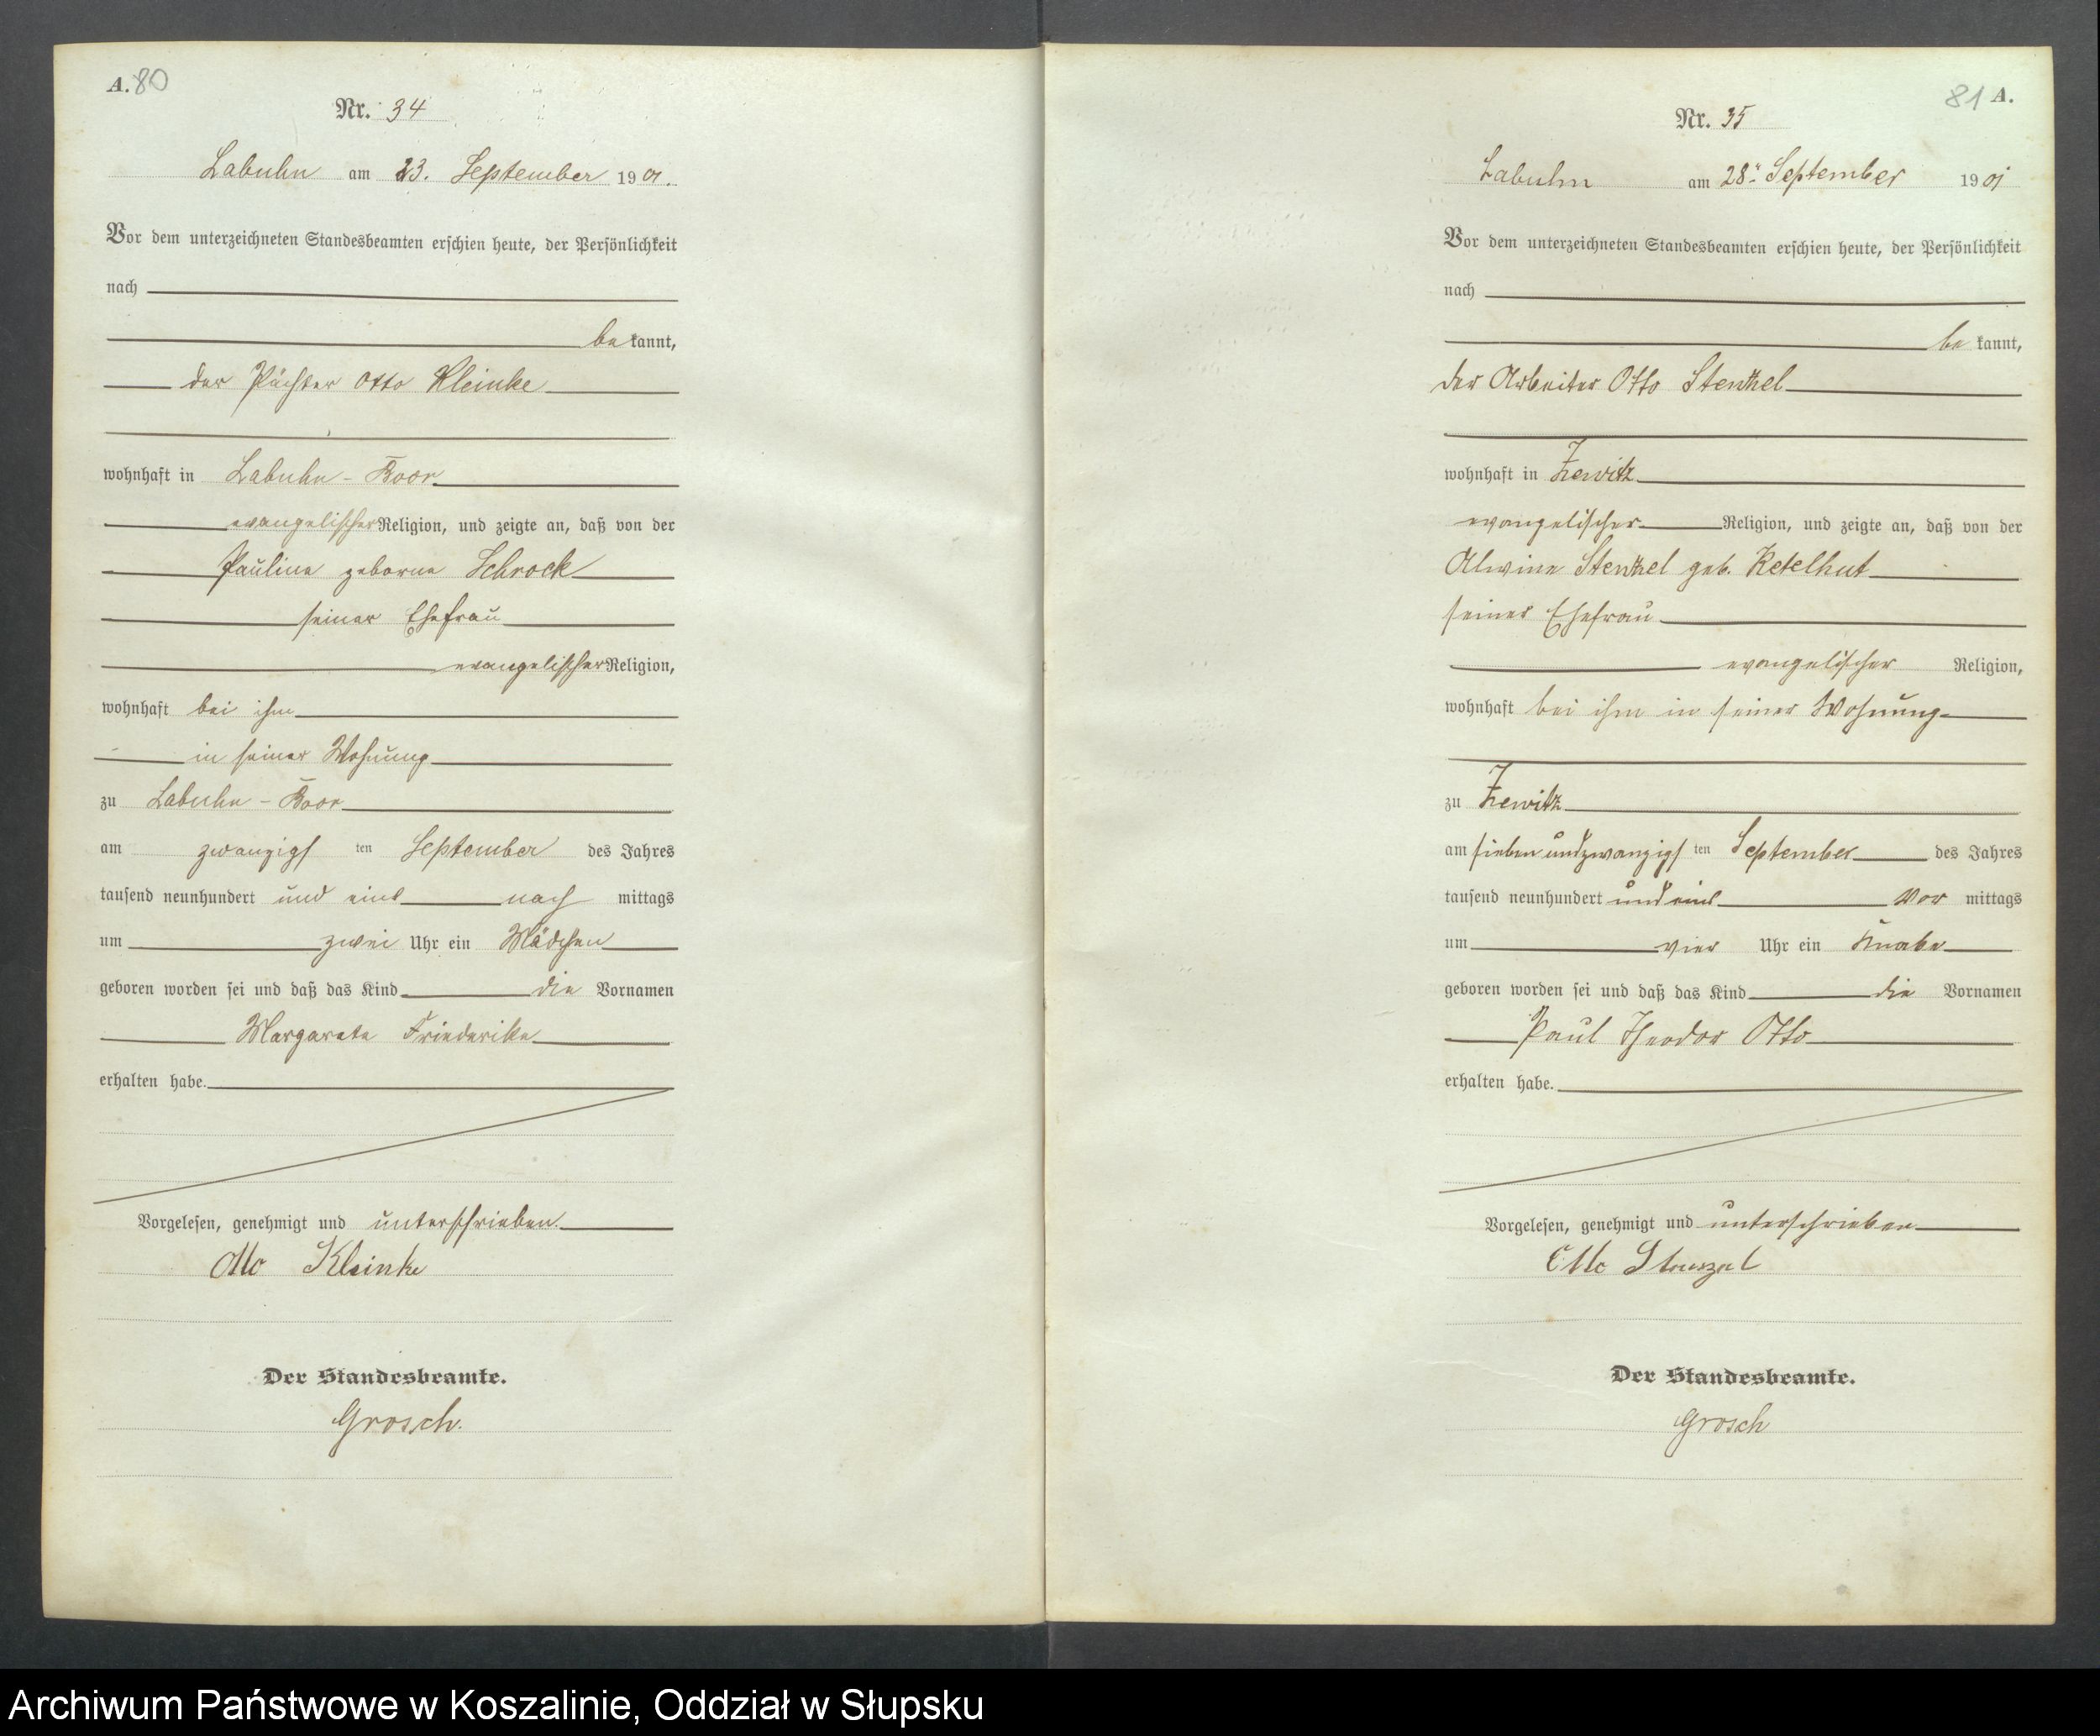 A. 80
Nr. 34
Labuhn am 23. September 1901.
Vor dem unterzeichneten Standesbeamten erschien heute, der Persönlichkeit
nach
be kannt,
der Pächter Otto Kleinke
wohnhaft in Labuhn -
evangelischer Religion, und zeigte an, daß von der
Pauline geborne Schrock
seiner Ehefrau
evangelischer Religion,
wohnhaft bei ihm
in seiner Wohnung
zu Labuhn -
am zwanzigs ten September des Jahres
tausend neunhundert und eins nach mittags
um zwei Uhr ein Mädchen
geboren worden sei und daß das Kind die Vornamen
Margarete Friederike
erhalten habe.
Vorgelesen, genehmigt und unterschrieben.
Otto Kleinke
Der Standesbeamte.
Grosch.
81 A.
Nr. 35
Labuhn am 28. September 1901
Vor dem unterzeichneten Standesbeamten erschien heute, der Persönlichkeit
nach
be kannt,
der Arbeiter Otto Stenzel
wohnhaft in Zewitz
evangelischer Religion, und zeigte an, daß von der
Alwine Stenzel geb. Retelhut
seiner Ehefrau
evangelischer Religion,
wohnhaft bei ihm in seiner Wohnung
zu Zewitz
am siebenundzwanzigs ten September des Jahres
tausend neunhundert und eins Vor mittags
um vier Uhr ein Knabe
geboren worden sei und daß das Kind die Vornamen
Paul Theodor Otto
erhalten habe.
Vorgelesen, genehmigt und unterschrieben
Otto Stenzel
Der Standesbeamte.
Grosch
Archiwum Państwowe w Koszalinie, Oddział w Słupsku